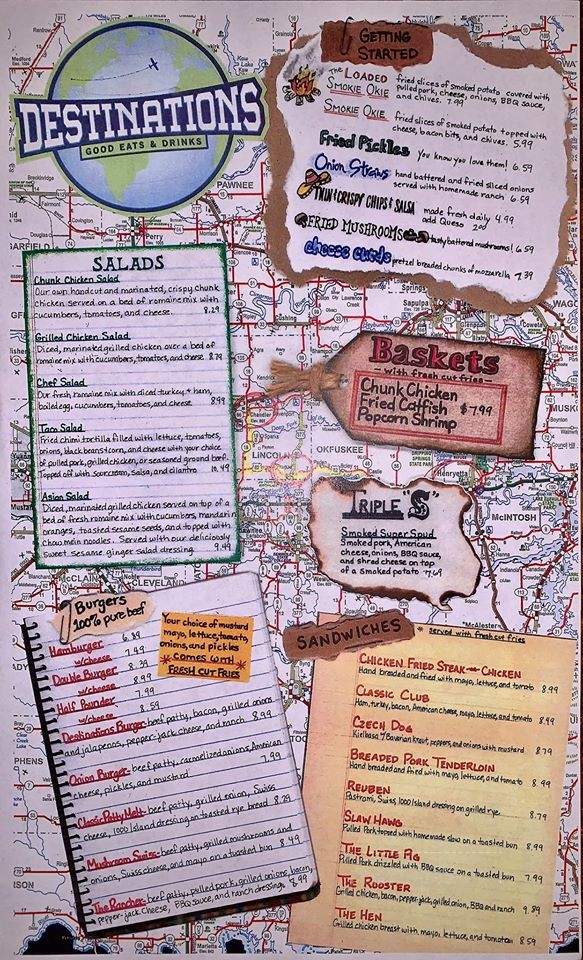 DESTINATIONS
GOOD EATS & DRINKS
GETTING
STARTED
The LOADED
SMOKIE OKIE
fried slices of smoked potato covered with
pulled pork, cheese, onions, BBQ sauce,
and chives. 7.99
SMOKIE OKIE
fried slices of smoked potato topped with
cheese, bacon bits, and chives. 5.99
Fried Pickles You know you love them! 6.59
Onion Straws hand battered and fried sliced onions
served with homemade ranch 6.59
THIN & CRISPY CHIPS & SALSA made fresh daily 4.99
add Queso 2.00
FRIED MUSHROOMS tasty battered mushrooms! 6.59
cheese curds pretzel breaded chunks of mozzarella 7.39
SALADS
Chunk Chicken Salad
Our own hand cut and marinated, crispy chunk
chicken served on a bed of romaine mix with
cucumbers, tomatoes, and cheese. 8.29
Grilled Chicken Salad
Diced, marinated grilled chicken over a bed of
romaine mix with cucumbers, tomatoes, and cheese 8.79
Chef Salad
Our fresh romaine mix with diced turkey & ham,
boiled egg, cucumbers, tomatoes, and cheese 8.99
Taco Salad
Fried chimi tortilla filled with lettuce, tomatoes,
onions, black beans & corn, and cheese with your choice
of pulled pork, grilled chicken, or seasoned ground beef.
Topped off with sour cream, salsa, and cilantro 10.49
Asian Salad
Diced, marinated grilled chicken served on top of a
bed of fresh romaine mix with cucumbers, mandarin
oranges, toasted sesame seeds, and topped with
chow mein noodles. Served with our deliciously
sweet sesame ginger salad dressing. 9.49
Baskets
- with fresh cut fries -
Chunk Chicken
Fried Catfish $7.99
Popcorn Shrimp
TRIPLE "S"
Smoked Super Spud
Smoked pork, American
cheese, onions, BBQ sauce,
and shred cheese on top
of a smoked potato 7.69
Burgers
100% pure beef
Hamburger 6.89
w/cheese 7.49
Double Burger 8.39
w/cheese 8.99
Half Pounder 7.99
w/cheese 8.59
Your choice of mustard
mayo, lettuce, tomato,
onions, and pickles
* COMES WITH *
FRESH CUT FRIES
Destinations Burger- beef patty, bacon, grilled onion
and jalapenos, pepper-jack cheese, and ranch 8.99
Onion Burger- beef patty, caramelized onions, American
cheese, pickles, and mustard 7.99
Classic Patty Melt- beef patty, grilled onion, Swiss
cheese, 1000 Island dressing on toasted rye bread 8.29
Mushroom Swiss- beef patty, grilled mushrooms and
onions, Swiss cheese, and mayo on a toasted bun 8.49
The Rancher- beef patty, pulled pork, grilled onions, bacon,
pepper-jack cheese, BBQ sauce, and ranch dressing 8.99
SANDWICHES
* served with fresh cut fries
CHICKEN FRIED STEAK -or- CHICKEN
Hand breaded and fried with mayo, lettuce, and tomato 8.99
CLASSIC CLUB
Ham, turkey, bacon, American cheese, mayo, lettuce, and tomato 8.99
CZECH DOG
Kielbasa w/ Bavarian kraut, peppers, and onions with mustard 8.79
BREADED PORK TENDERLOIN
Hand breaded and fried with mayo, lettuce, and tomato 8.99
REUBEN
Pastrami, Swiss, 1000 Island dressing on grilled rye 8.79
SLAW HAWG
Pulled Pork topped with homemade slaw on a toasted bun 8.99
THE LITTLE PIG
Pulled Pork drizzled with BBQ sauce on a toasted bun 7.99
THE ROOSTER
Grilled chicken, bacon, pepper-jack, grilled onion, BBQ and ranch 9.89
THE HEN
Grilled chicken breast with mayo, lettuce, and tomato 8.59
PAWNEE
Perry
LINCOLN
OKFUSKEE
McINTOSH
McCLAIN
CLEVELAND
Sapulpa
Coweta
Henryetta
McAlester